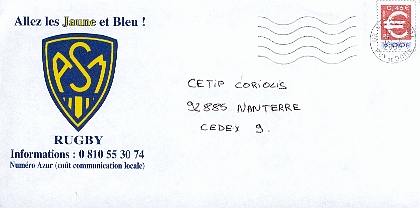 Allez les Jaune et Bleu !
ASM
RUGBY
Informations : 0 810 55 30 74
Numéro Azur (coût communication locale)
0,46€
3,00F
CETIP CORIOLIS
92885 NANTERRE
CEDEX 9.